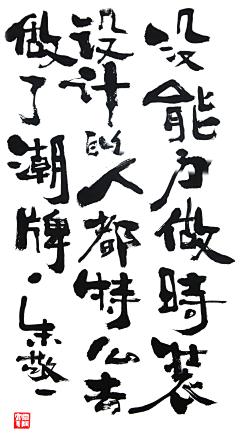 没能力做時装
設计的人都特么去
做了潮牌·朱敬一